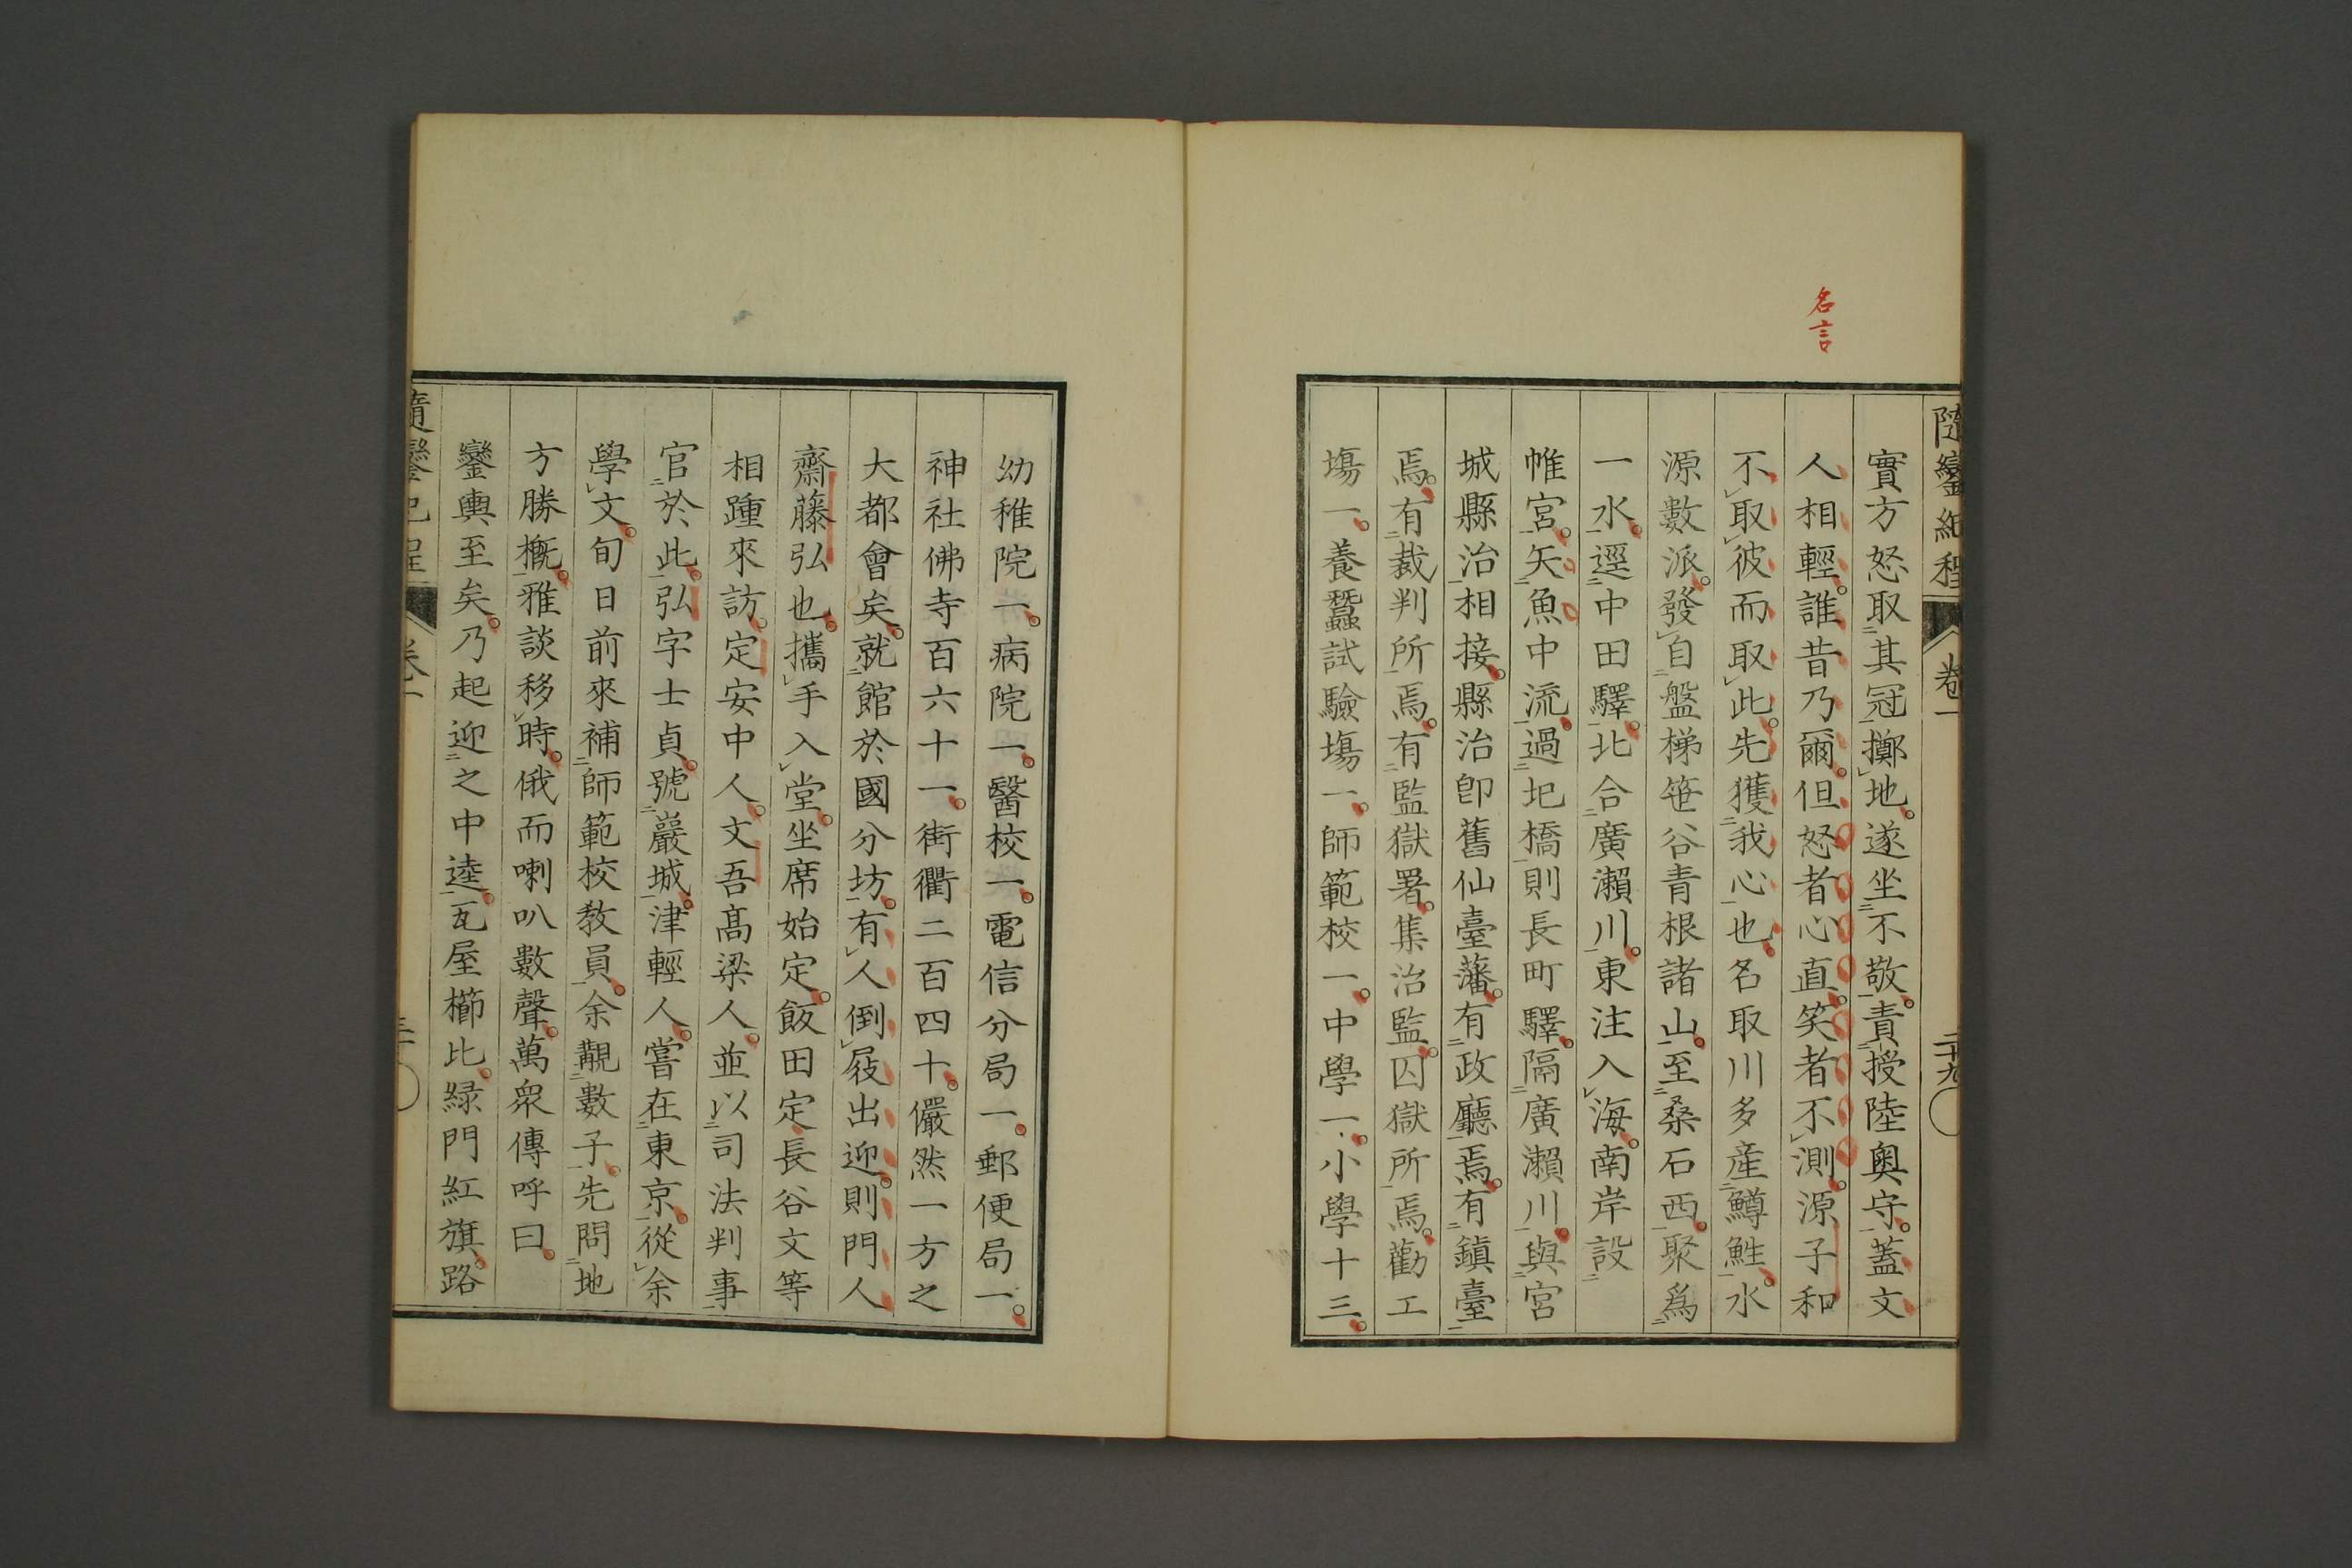 名言
隨鑾紀程 卷一 二十九
實方怒取其冠擲地。遂坐不敬。責授陸奧守。蓋文
人相輕。誰昔乃爾。但怒者心直。笑者不測。源子和
不取彼而取此。先獲我心也。名取川多産鱒鮏。水
源數派。發自盤梯笹谷青根諸山。至桑石西。聚爲
一水。逕中田驛。北合廣瀨川。東注入海。南岸設
帷宮。矢魚中流。過圯橋則長町驛。隔廣瀨川。與宮
城縣治相接。縣治卽舊仙臺藩。有政廳焉。有鎮臺
焉。有裁判所焉。有監獄署。集治監。囚獄所焉。勸工
塲一。養蠶試驗塲一。師範校一。中學一。小學十三。
幼稚院一。病院一。醫校一。電信分局一。郵便局一。
神社佛寺百六十一。街衢二百四十。儼然一方之
大都會矣。就館於國分坊。有人倒屐出迎。則門人
齋藤弘也。攜手入堂。坐席始定。飯田定長谷文等
相踵來訪。定安中人。文吾髙梁人。並以司法判事
官於此。弘字士貞。號巖城。津輕人。嘗在東京。從余
學文。旬日前來補師範校教員。余覯數子。先問地
方勝槪。雅談移時。俄而喇叭數聲。萬衆傳呼曰。
鑾輿至矣。乃起迎之中逵。瓦屋櫛比。緑門紅旗。路
隨鑾紀程 卷一 三十